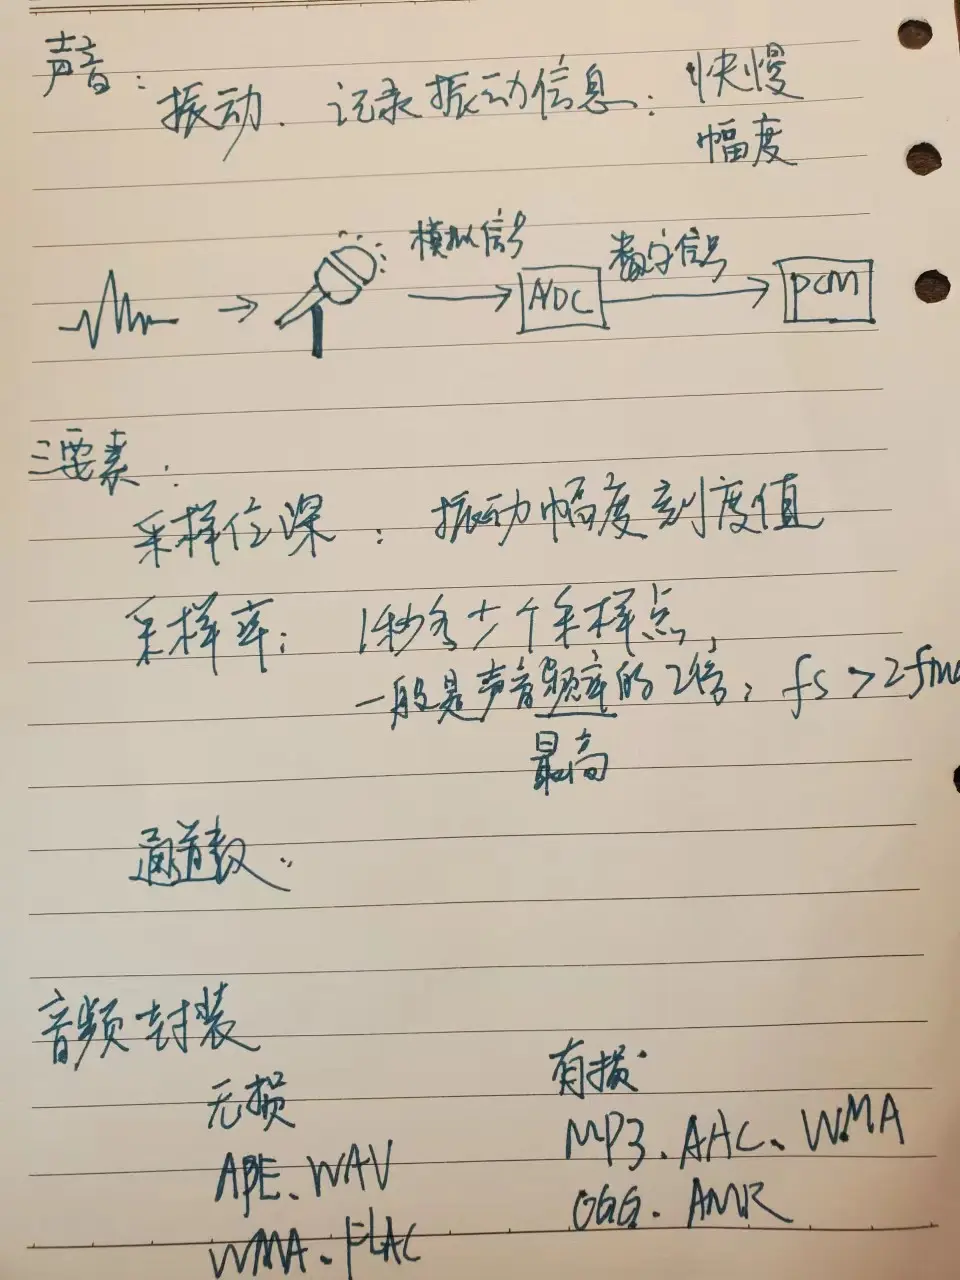 声音:
振动、记录振动信息:快慢
幅度
模拟信号 数字信号
ADC PCM
三要素:
采样位深:振动幅度刻度值
采样率:1秒多少个采样点,
一般是声音频率的2倍, fs > 2fm
最高
通道数:
音频封装
无损 有损
APE、WAV MP3、AAC、WMA
WMA、FLAC OGG、AMR